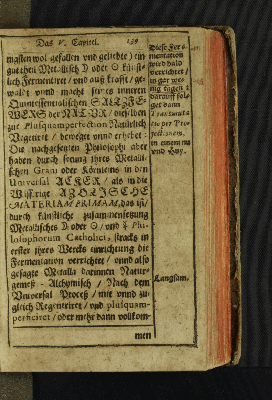 Das V. Capitel. 139
nigsten wol gefallen vnd geliebte) ein
gut theil Metallisch ☽ oder ☉ künst-
lich Fermentiret / vnd auß krafft / ge-
walt vnnd macht seines inneren
Quintessentialischen SALTZFE-
WERS der NATVR / dieselben
zur Plusquamperfection Natürlich
Vegetirt / beweget vnnd erhebet.
Die nachgesetzten Philosophi aber
haben durch setzung ihres Metalli-
schen Grans oder Körnleins in den
Universal ACKER / als in die
Wässrige AZOTISCHE
MATERIAM PRIMAM, das ist /
durch künstliche zusammensetzung
Metallisches ☽ oder ☉ / vnd ☿ Phi-
losophorum Catholici, stracks in
erster ihres Wercks einrichtung die
Fermentation verrichtet / vnnd also
gesagte Metalla darinnen Natur-
gemeß - Alchymisch / Nach dem
Vniversal Proceß / mit vnnd zu-
gleich Regeneriret / vnd plusquam-
perficiret / oder mehr dann vollkom-
men
Diese Fer-
mentation
wird bald
verrichtet /
in gar we-
nig tagen:
darauff fol-
get dann
Transmuta-
tio per Pro-
jectionem,
in einem nu
vnd Huy.
Langsam.